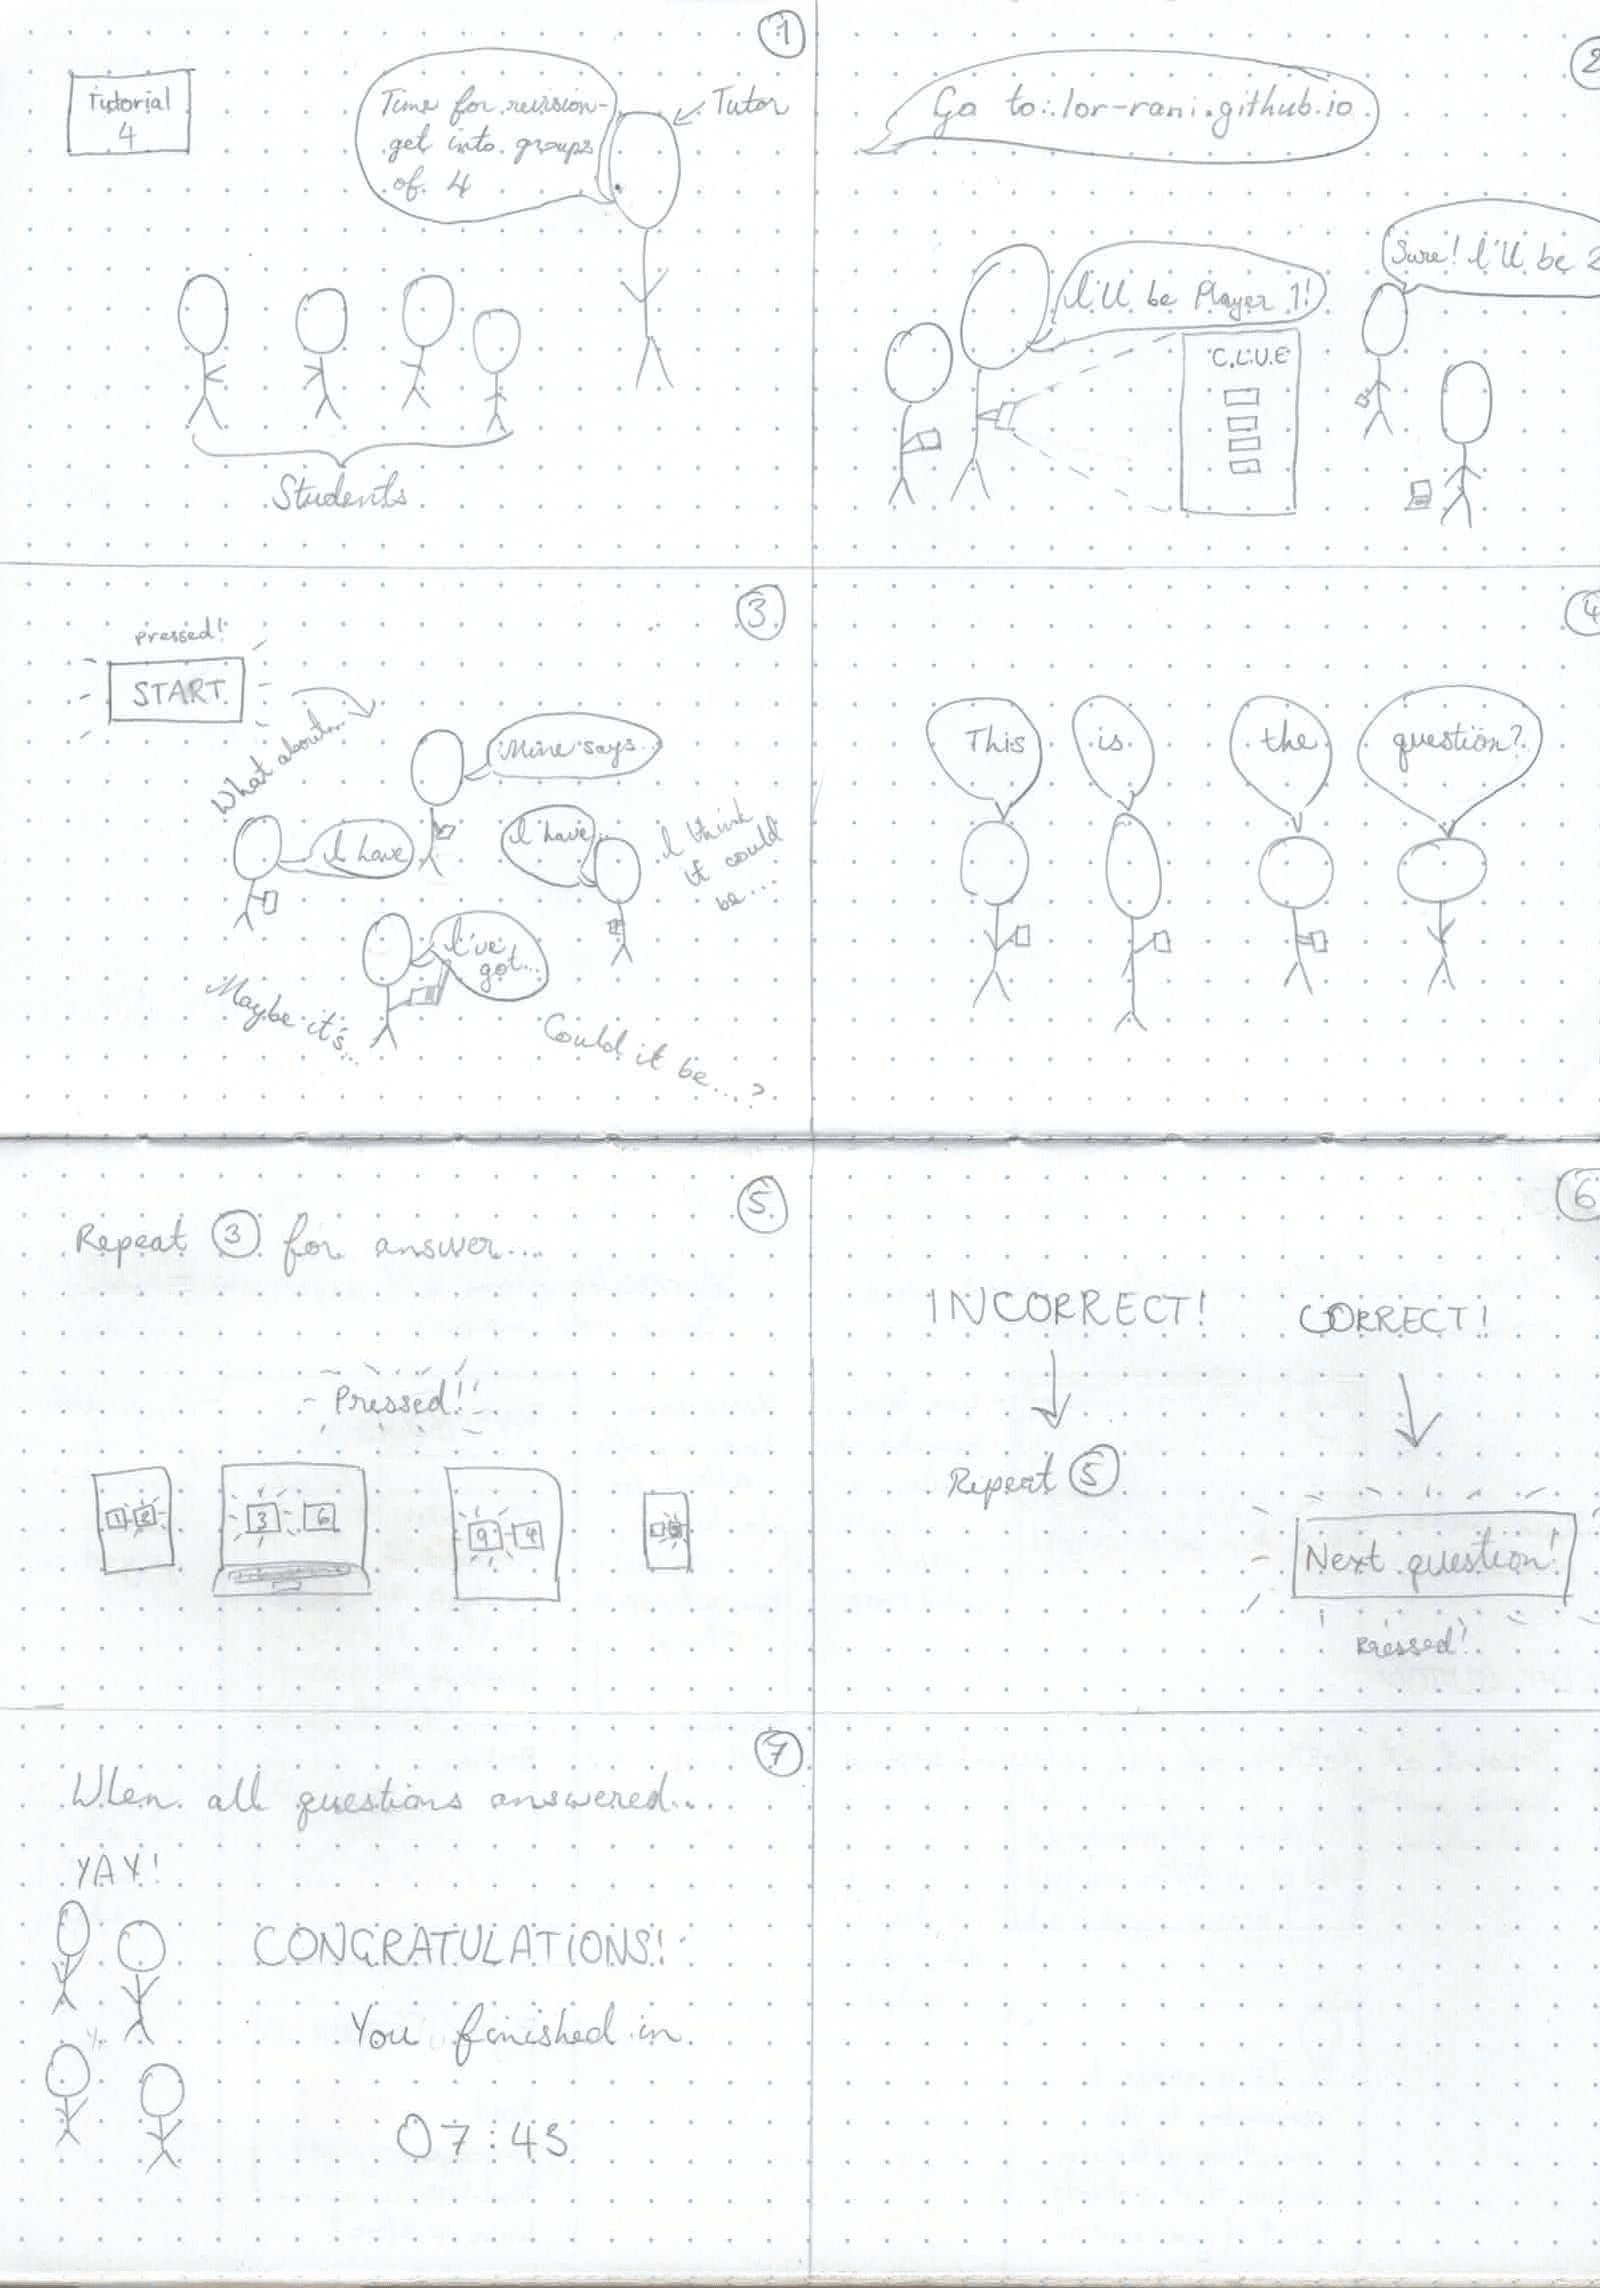 1
Tutorial
4
Time for revision-
get into groups
of 4
Tutor
Students
2
Go to: lor-rani.github.io
I'll be Player 1!
Sure! I'll be 2
C.L.U.E
3
Pressed!
START
What about...
Mine says...
I have
I have...
I think
it could
be...
I've
got...
Maybe it's...
Could it be...?
4
This
is
the
question?
5
Repeat 3 for answer...
Pressed!!
1 2
3 6
9 4
6
INCORRECT!
CORRECT!
Repeat 5
Next question!
Pressed!
7
When all questions answered...
YAY!
CONGRATULATIONS!
You finished in
07:43